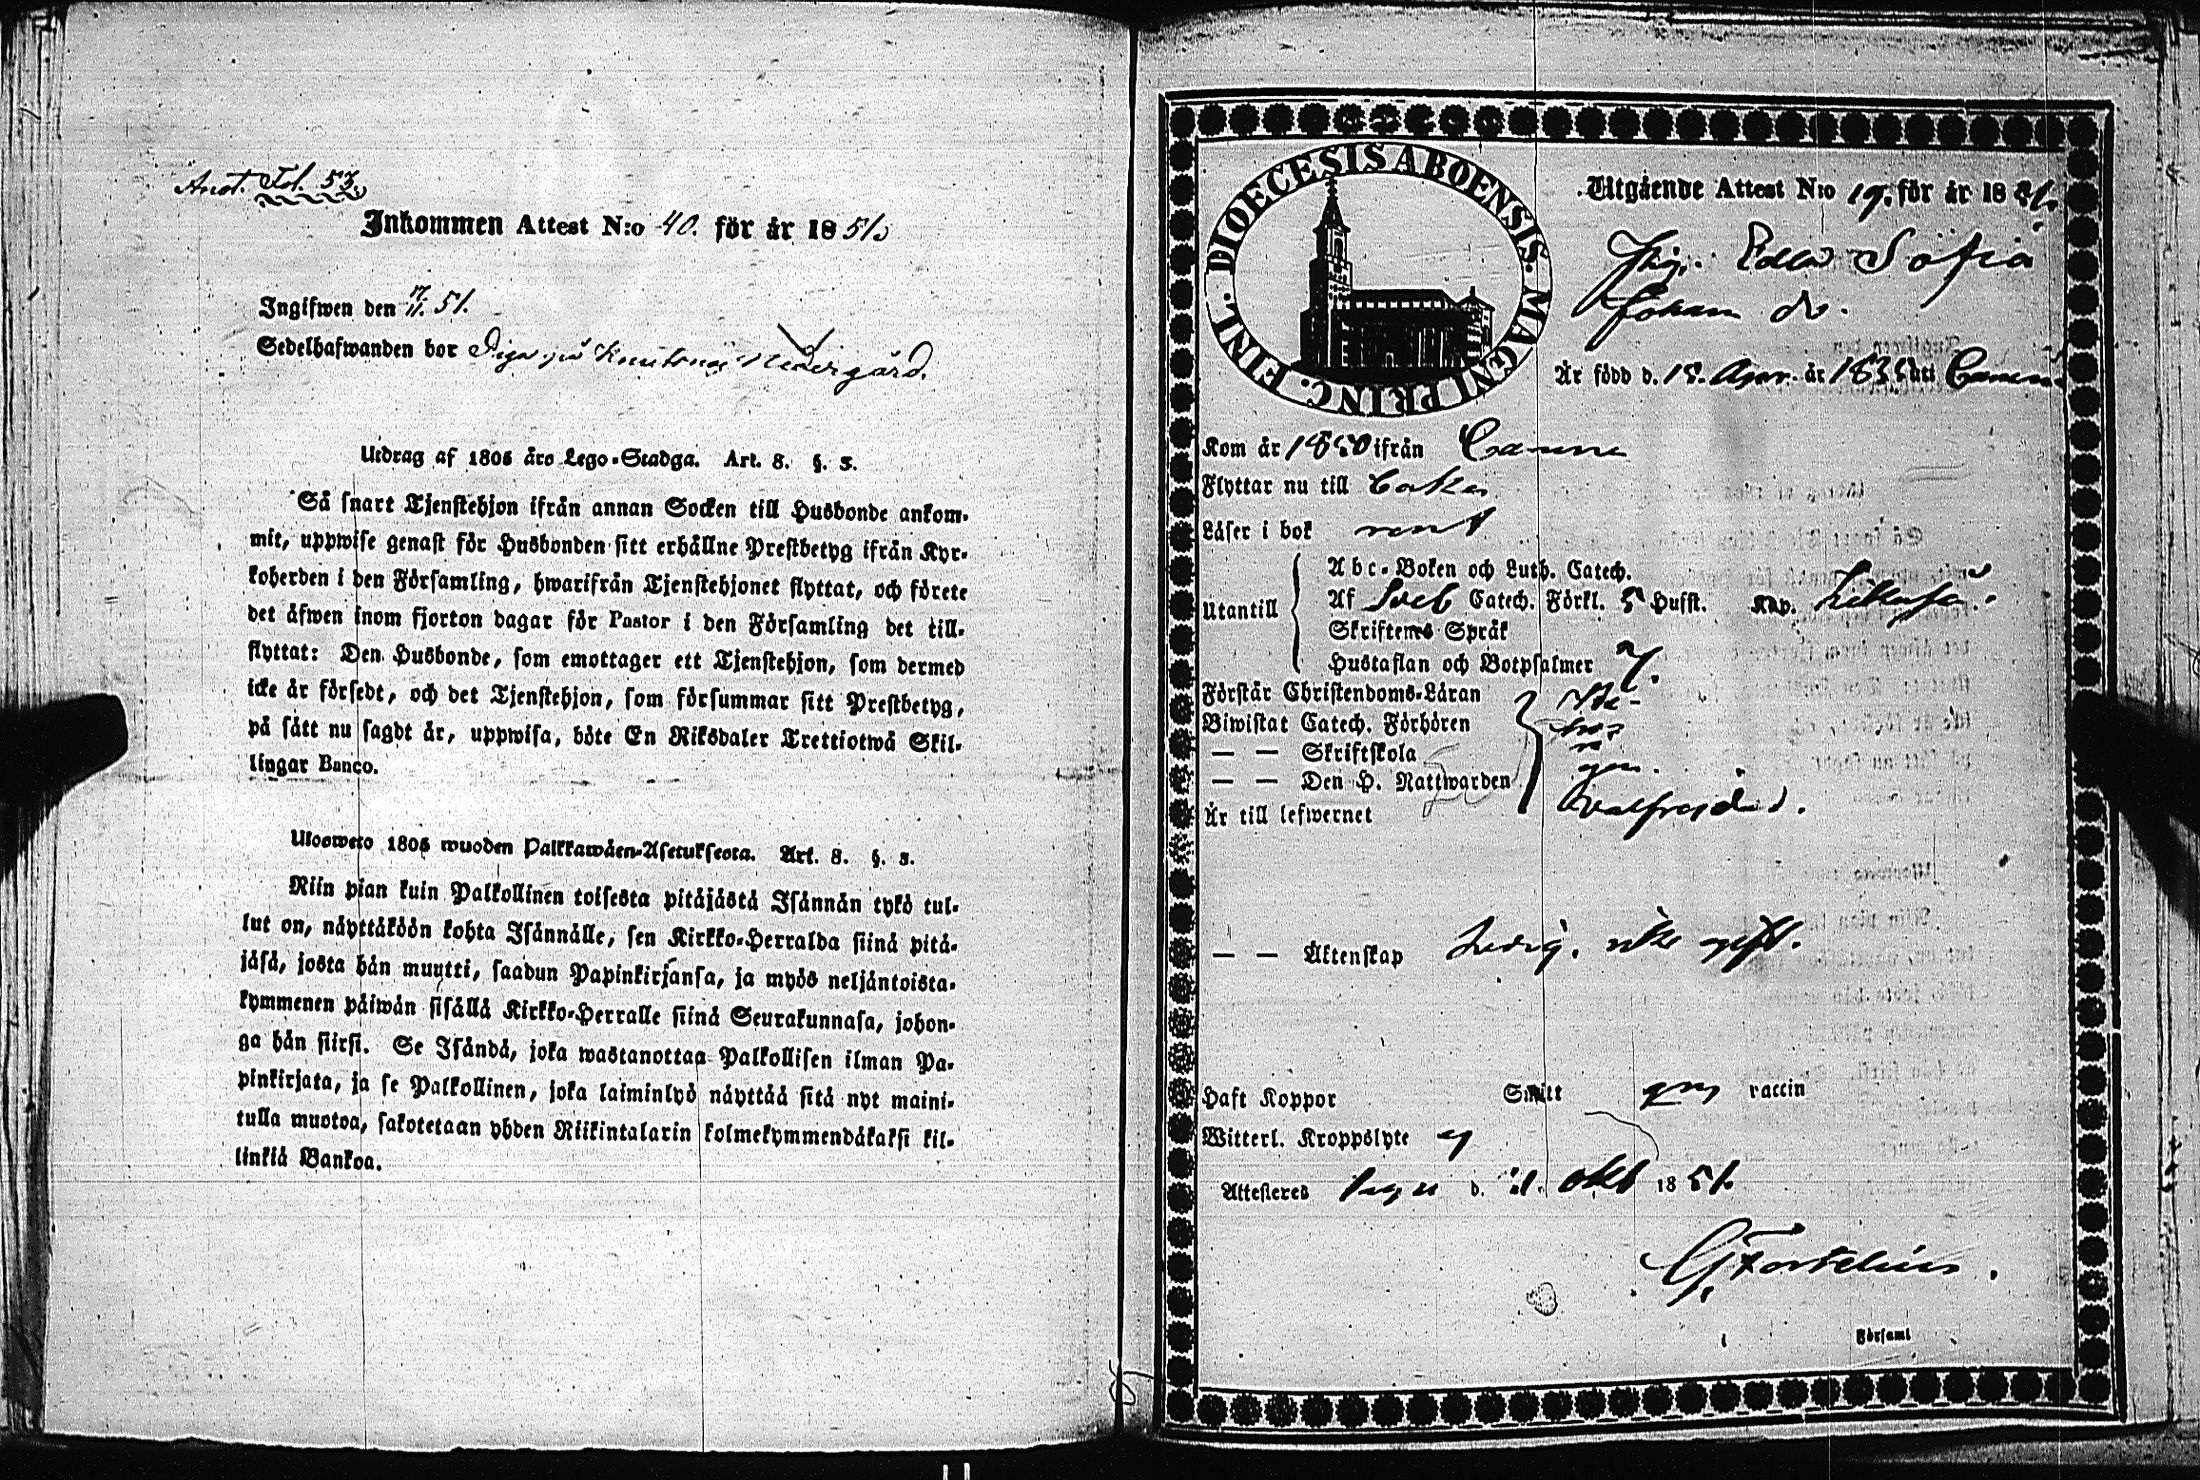 Anot. Fol. 53.
Inkommen Attest N:o 40. för år 1851.
Ingifwen den 17/11 51.
Sedelhafwanden bor Piga på Knutsnäs Nedergård.
Utdrag af 1805 års Lego-Stadga. Art. 8. §. 5.
Så snart Tjenstehjon ifrån annan Socken till Husbonde ankom-
mit, uppwise genast för Husbonden sitt erhållne Prestbetyg ifrån Kyr-
koherden i den Församling, hwarifrån Tjenstehjonet flyttat, och förete
det åfwen inom fjorton dagar för Pastor i den Församling det till-
flyttat: Den Husbonde, som emottager ett Tjenstehjon, som dermed
icke år försedt, och det Tjenstehjon, som försummar sitt Prestbetyg,
på sått nu sagdt år, uppwisa, böte En Riksdaler Trettiotwå Skil-
lingar Banco.
Ulosweto 1805 wuoden Palkkawåen-Asetuksesta. Art. 8. §. 5.
Niin pian kuin Palkollinen toisesta pitåjåstå Isånnån tykö tul-
lut on, nåyttåköön kohta Isånnålle, sen Kirkko-Herralda siinå pitå-
jåså, josta hån muutti, saadun Papinkirjansa, ja myös neljåntoista-
kymmenen påiwån sisållå Kirkko-Herralle siinå Seurakunnasa, johon-
ga hån siirsi. Se Isåndå, joka wastanottaa Palkollisen ilman Pa-
pinkirjata, ja se Palkollinen, joka laiminlyö nåyttåå sitå nyt maini-
tulla muotoa, sakotetaan yhden Riikintalarin kolmekymmendåkaksi kil-
linkiå Bankoa.
DIOECESIS ABOENSIS. MAGNI PRINC. FINL.
Utgående Attest N:o 19. för år 1851.
Pig. Edla Sofia
Johans dr.
År född d. 18. Apr. år 1835 uti
Kom år 1850 ifrån
Flyttar nu till
Låser i bok rent
Utantill
Abc-Boken och Luth. Catech.
Af Sveb Catech. Förkl. 5 Hufst. Kap.
Skriftens Språk
Hustaflan och Botpsalmer
Förstår Christendoms-Låran
Biwistat Catech. Förhören
— — Skriftskola
— — Den H. Nattwarden
År till lefwernet wälfrejdad.
— — Åktenskap Ledig. icke gift.
Haft Koppor Smitt gm vaccin
Witterl. Kroppslyte ej
Attesteres d. 21. Okt 1851.
Församl